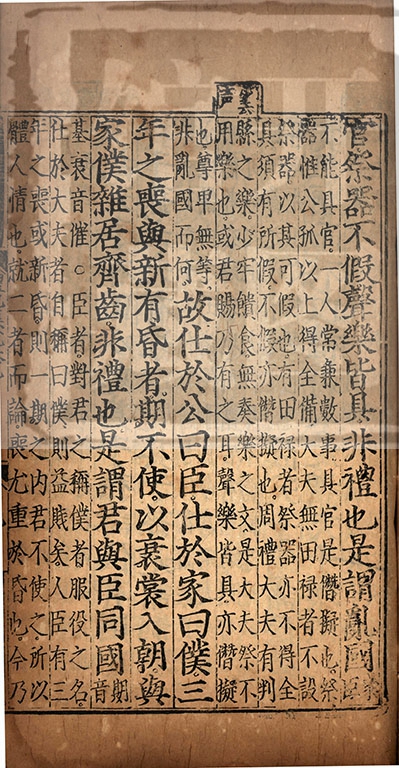 官祭器不假聲樂皆具非禮也是謂亂國家臣
不能具官一人常兼數事具官是僭擬也祭
器惟公孤以上得全備大夫無田禄者不設
祭器以其可假也有田禄者祭器亦不得全
具須有所假不假亦僭擬也周禮大夫有判
縣之樂少牢饋食無奏樂之文是大夫祭不
用樂也或君賜乃有之耳聲樂皆具亦僭擬
也尊卑無等
非亂國而何
故仕於公曰臣仕於家曰僕三
年之喪與新有昏者期不使以衰裳入朝與
家僕雜居齊齒非禮也是謂君與臣同國期音
基衰音催○臣者對君之稱僕者服役之名
仕於大夫者自稱曰僕則益賤矣人臣有三
年之喪或新昏則一期之内君不使之所以
體人情也就二者而論喪尤重於昏也今乃